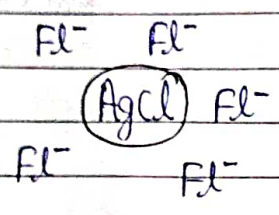 Fl⁻ Fl⁻
AgCl Fl⁻
Fl⁻ Fl⁻